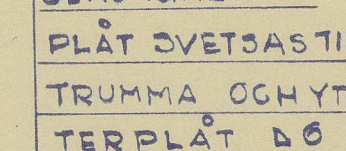 PLÅT SVETSAS TI
TRUMMA OCH YT
TERPLÅT